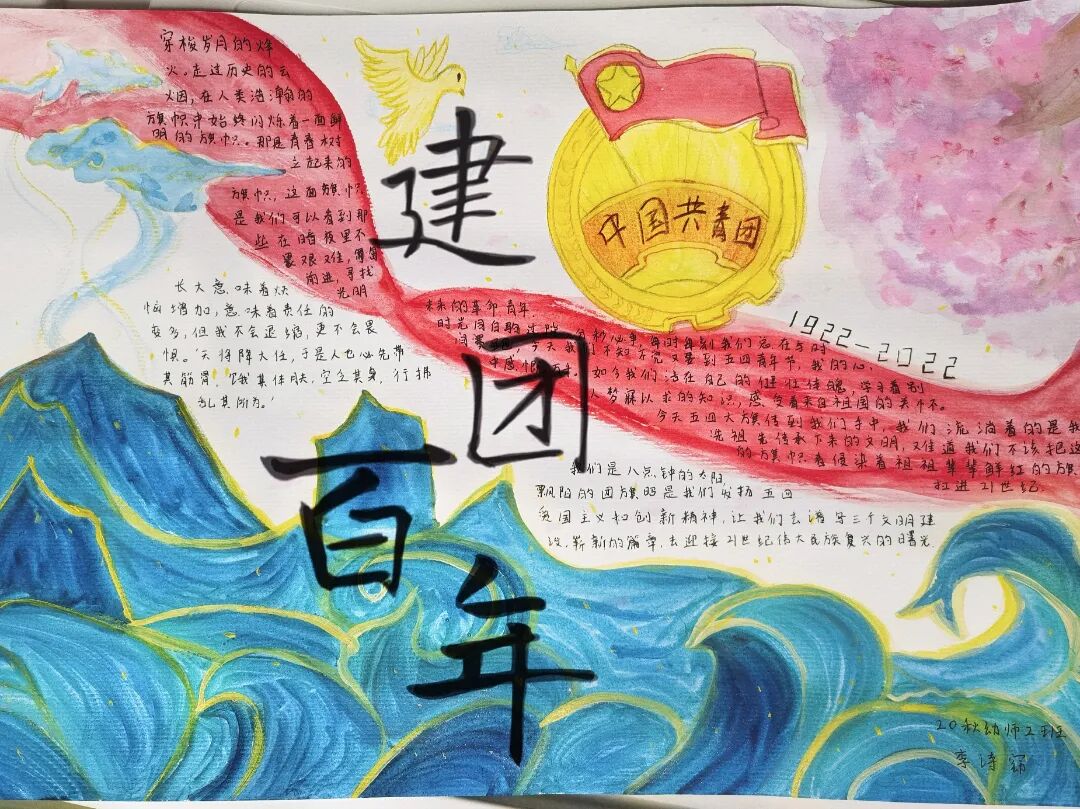 穿梭岁月的烽
火。走过历史的云
烟,在人类浩瀚的
旗帜中始终闪烁着一面鲜
明的旗帜。那是青春树
立起来的
旗帜,这面旗帜
是我们可以看到那
些在暗夜里不
畏艰难,
前进,寻找
光明
建
团
百
年
中国共青团
1922-2022
长大意味着烦
恼增加,意味着责任的
变多,但我不会退缩,更不会畏
惧。“天将降大任,于是人也必先带
其筋骨,饿其体肤,空乏其身,行拂
乱其所为。”
未来的革命青年
时光
今天我们不知不觉又要到五四青年节,我的心、
如今我们活在自己的
人梦寐以求的知识,感
今天五四大旗传到我们手中,我们流淌着的是我
先祖先传承下来的文明,难道我们不该把这
的旗帜着侵染着祖祖辈辈鲜红的旗
扛进21世纪
我们是八点钟的太阳
飘阳的团旗明是我们发扬五四
爱国主义和创新精神,让我们去谱写三个文明建
设,崭新的篇章,去迎接21世纪伟大民族复兴的曙光
20秋幼师2班
李诗